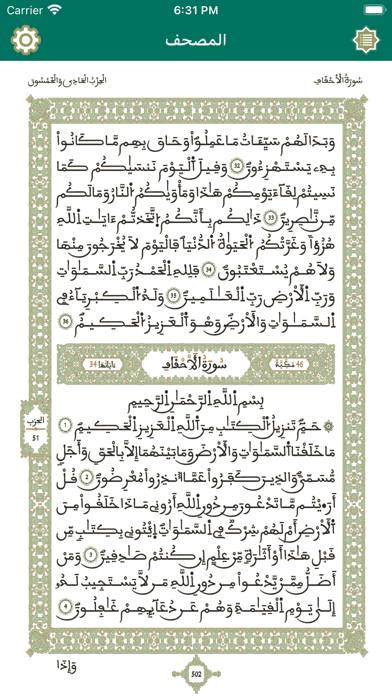 Carrier 6:31 PM
المصحف
سُورَةُ الْأَحْقَافِ
الحِزْبُ الحَادِي وَالخَمْسُون
وَبَدَا لَهُمْ سَيِّـَٔاتُ مَا عَمِلُواْ وَحَاقَ بِهِم مَّا كَانُواْ
بِهِۦ يَسْتَهْزِءُونَ 32 وَقِيلَ اَ۬لْيَوْمَ نَنسَيٰكُمْ كَمَا
نَسِيتُمْ لِقَآءَ يَوْمِكُمْ هَٰذَا وَمَأْوَيٰكُمُ اُ۬لنَّارُ وَمَا لَكُم
مِّن نَّٰصِرِينَ 33 ذَٰلِكُم بِأَنَّكُمُ اُ۪تَّخَذتُّمُۥٓ ءَايَٰتِ اِ۬للَّهِ
هُزُؤاً وَغَرَّتْكُمُ اُ۬لْحَيَوٰةُ اُ۬لدُّنْيَا فَالْيَوْمَ لَا يُخْرَجُونَ مِنْهَا
وَلَا هُمْ يُسْتَعْتَبُونَ 34 فَلِلهِ اِ۬لْحَمْدُ رَبِّ اِ۬لسَّمَٰوَٰتِ
وَرَبِّ اِ۬لْأَرْضِ رَبِّ اِ۬لْعَٰلَمِينَ 35 وَلَهُ اُ۬لْكِبْرِيَآءُ فِے
اِ۬لسَّمَٰوَٰتِ وَالْأَرْضِ وَهُوَ اَ۬لْعَزِيزُ اُ۬لْحَكِيمُ 36
46 مَكِّيَّة
سُورَةُ الْأَحْقَافِ
ءَايَاتُهَا 34
بِسْمِ اِ۬للَّهِ اِ۬لرَّحْمَٰنِ اِ۬لرَّحِيمِ
حَمِٓ تَنزِيلُ اُ۬لْكِتَٰبِ مِنَ اَ۬للَّهِ اِ۬لْعَزِيزِ اِ۬لْحَكِيمِ 1
مَا خَلَقْنَا اَ۬لسَّمَٰوَٰتِ وَالْأَرْضَ وَمَا بَيْنَهُمَآ إِلَّا بِالْحَقِّ وَأَجَلٖ
مُّسَمّيٗ وَالذِينَ كَفَرُواْ عَمَّآ أُنذِرُواْ مُعْرِضُونَ 2 قُلَ
اَرَٰٓيْتُم مَّا تَدْعُونَ مِن دُونِ اِ۬للَّهِ أَرُونِے مَاذَا خَلَقُواْ مِنَ
اَ۬لْأَرْضِ أَمْ لَهُمْ شِرْكٞ فِے اِ۬لسَّمَٰوَٰتِ اِ۪يتُونِے بِكِتَٰبٖ مِّن
قَبْلِ هَٰذَآ أَوَ اَثَٰرَةٖ مِّنْ عِلْمٍ اِن كُنتُمْ صَٰدِقِينَ 3 وَمَنَ
اَضَلُّ مِمَّنْ يَّدْعُواْ مِن دُونِ اِ۬للَّهِ مَن لَّا يَسْتَجِيبُ لَهُۥٓ
إِلَىٰ يَوْمِ اِ۬لْقِيَٰمَةِ وَهُمْ عَن دُعَآئِهِمْ غَٰفِلُونَ 4
الحزب
51
502
وَإِذَا